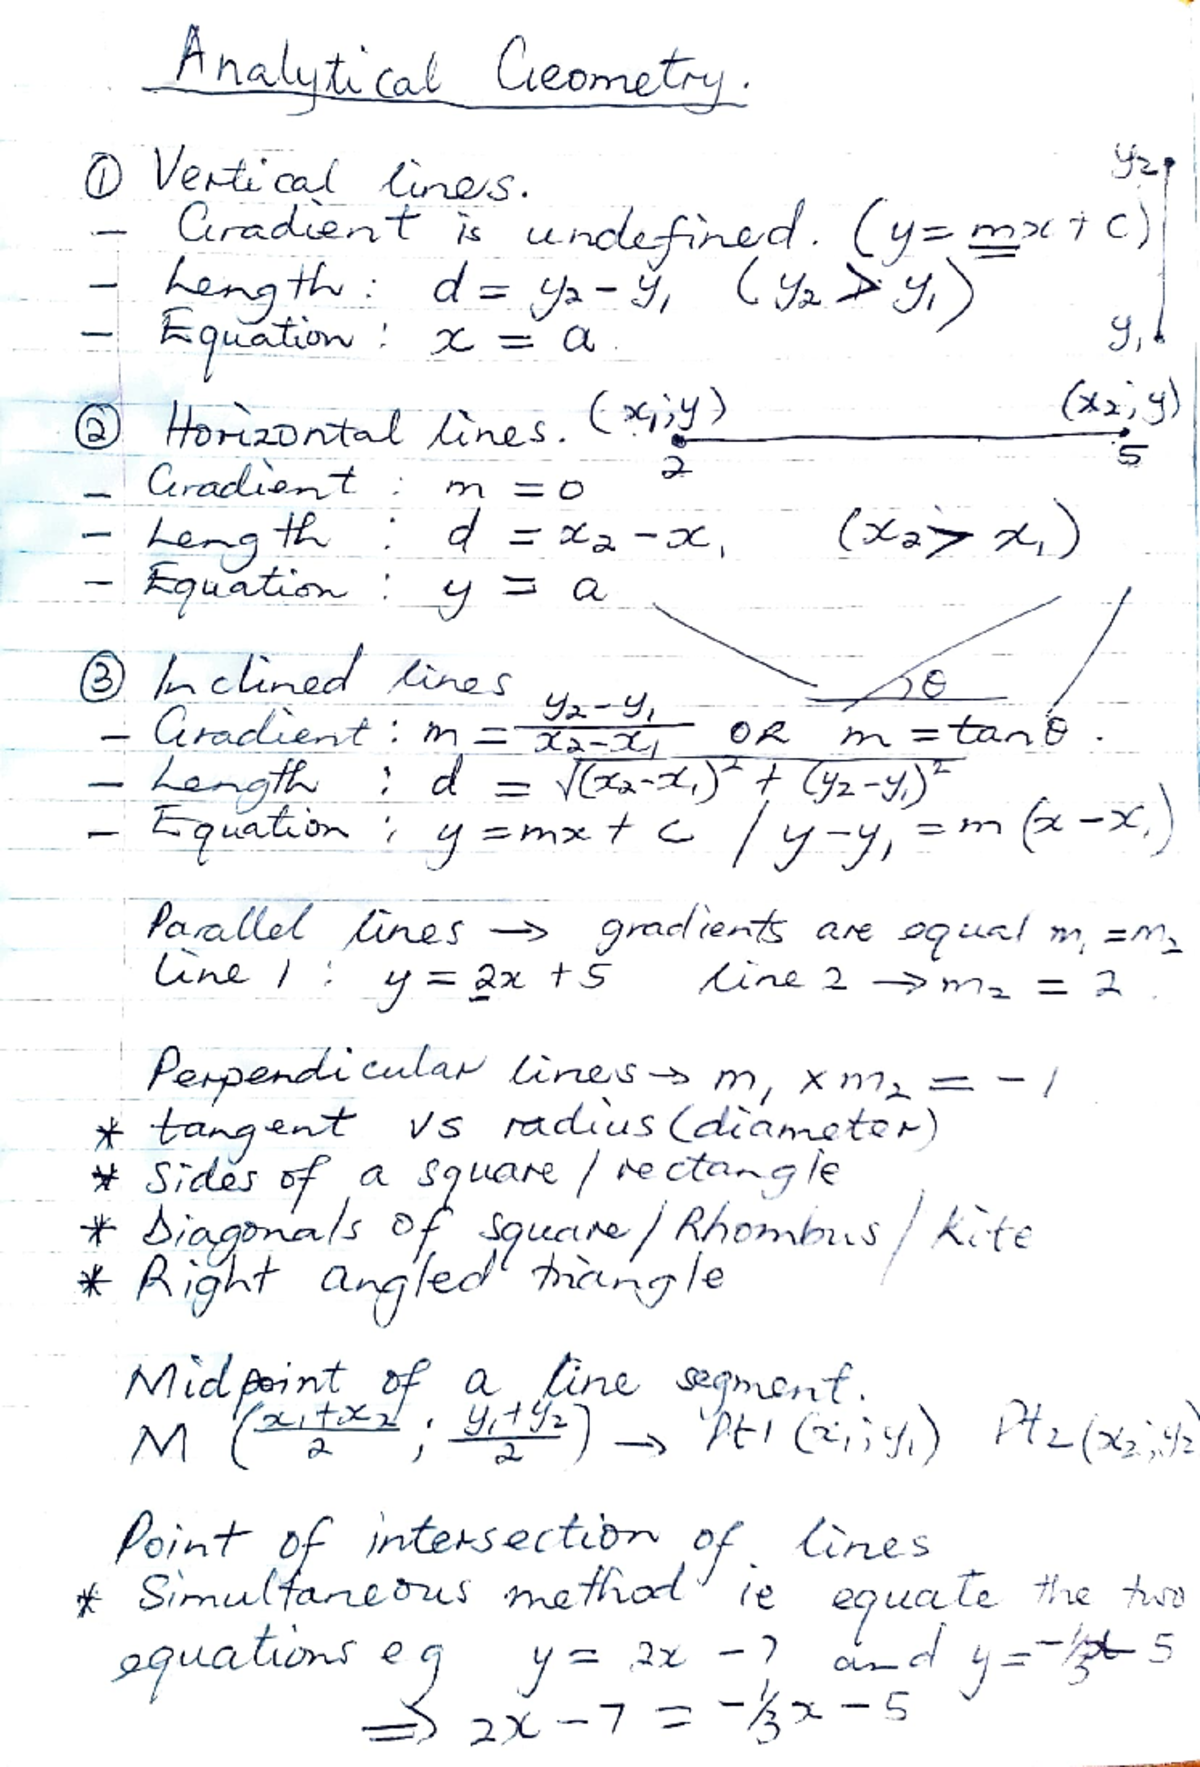 Analytical Geometry.
① Vertical lines. y₂
– Gradient is undefined. (y = mx + c)
– Length : d = y₂ – y₁ (y₂ > y₁)
– Equation : x = a. y₁
② Horizontal lines. (x₁;y) (x₂;y)
2 5
– Gradient : m = 0
– Length : d = x₂ – x₁ (x₂ > x₁)
– Equation : y = a
③ Inclined lines θ
– Gradient : m = (y₂ – y₁)/(x₂ – x₁) OR m = tan θ.
– Length : d = √((x₂ – x₁)² + (y₂ – y₁)²)
– Equation : y = mx + c / y – y₁ = m (x – x₁)
Parallel lines → gradients are equal m₁ = m₂
line 1 : y = 2x + 5 line 2 → m₂ = 2.
Perpendicular lines → m₁ × m₂ = – 1
* tangent vs radius (diameter)
* Sides of a square / rectangle
* Diagonals of square / Rhombus / Kite
* Right angled triangle
Midpoint of a line segment.
M ((x₁ + x₂)/2 ; (y₁ + y₂)/2) → Pt1 (x₁;y₁) Pt2 (x₂;y₂
Point of intersection of lines
* Simultaneous method ie equate the two
equations eg y = 2x – 7 and y = –⅓x – 5
⇒ 2x – 7 = –⅓x – 5